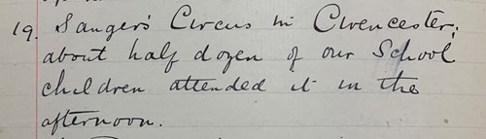 19. Sanger's Circus in Cirencester;
about half dozen of our School
children attended it in the
afternoon.